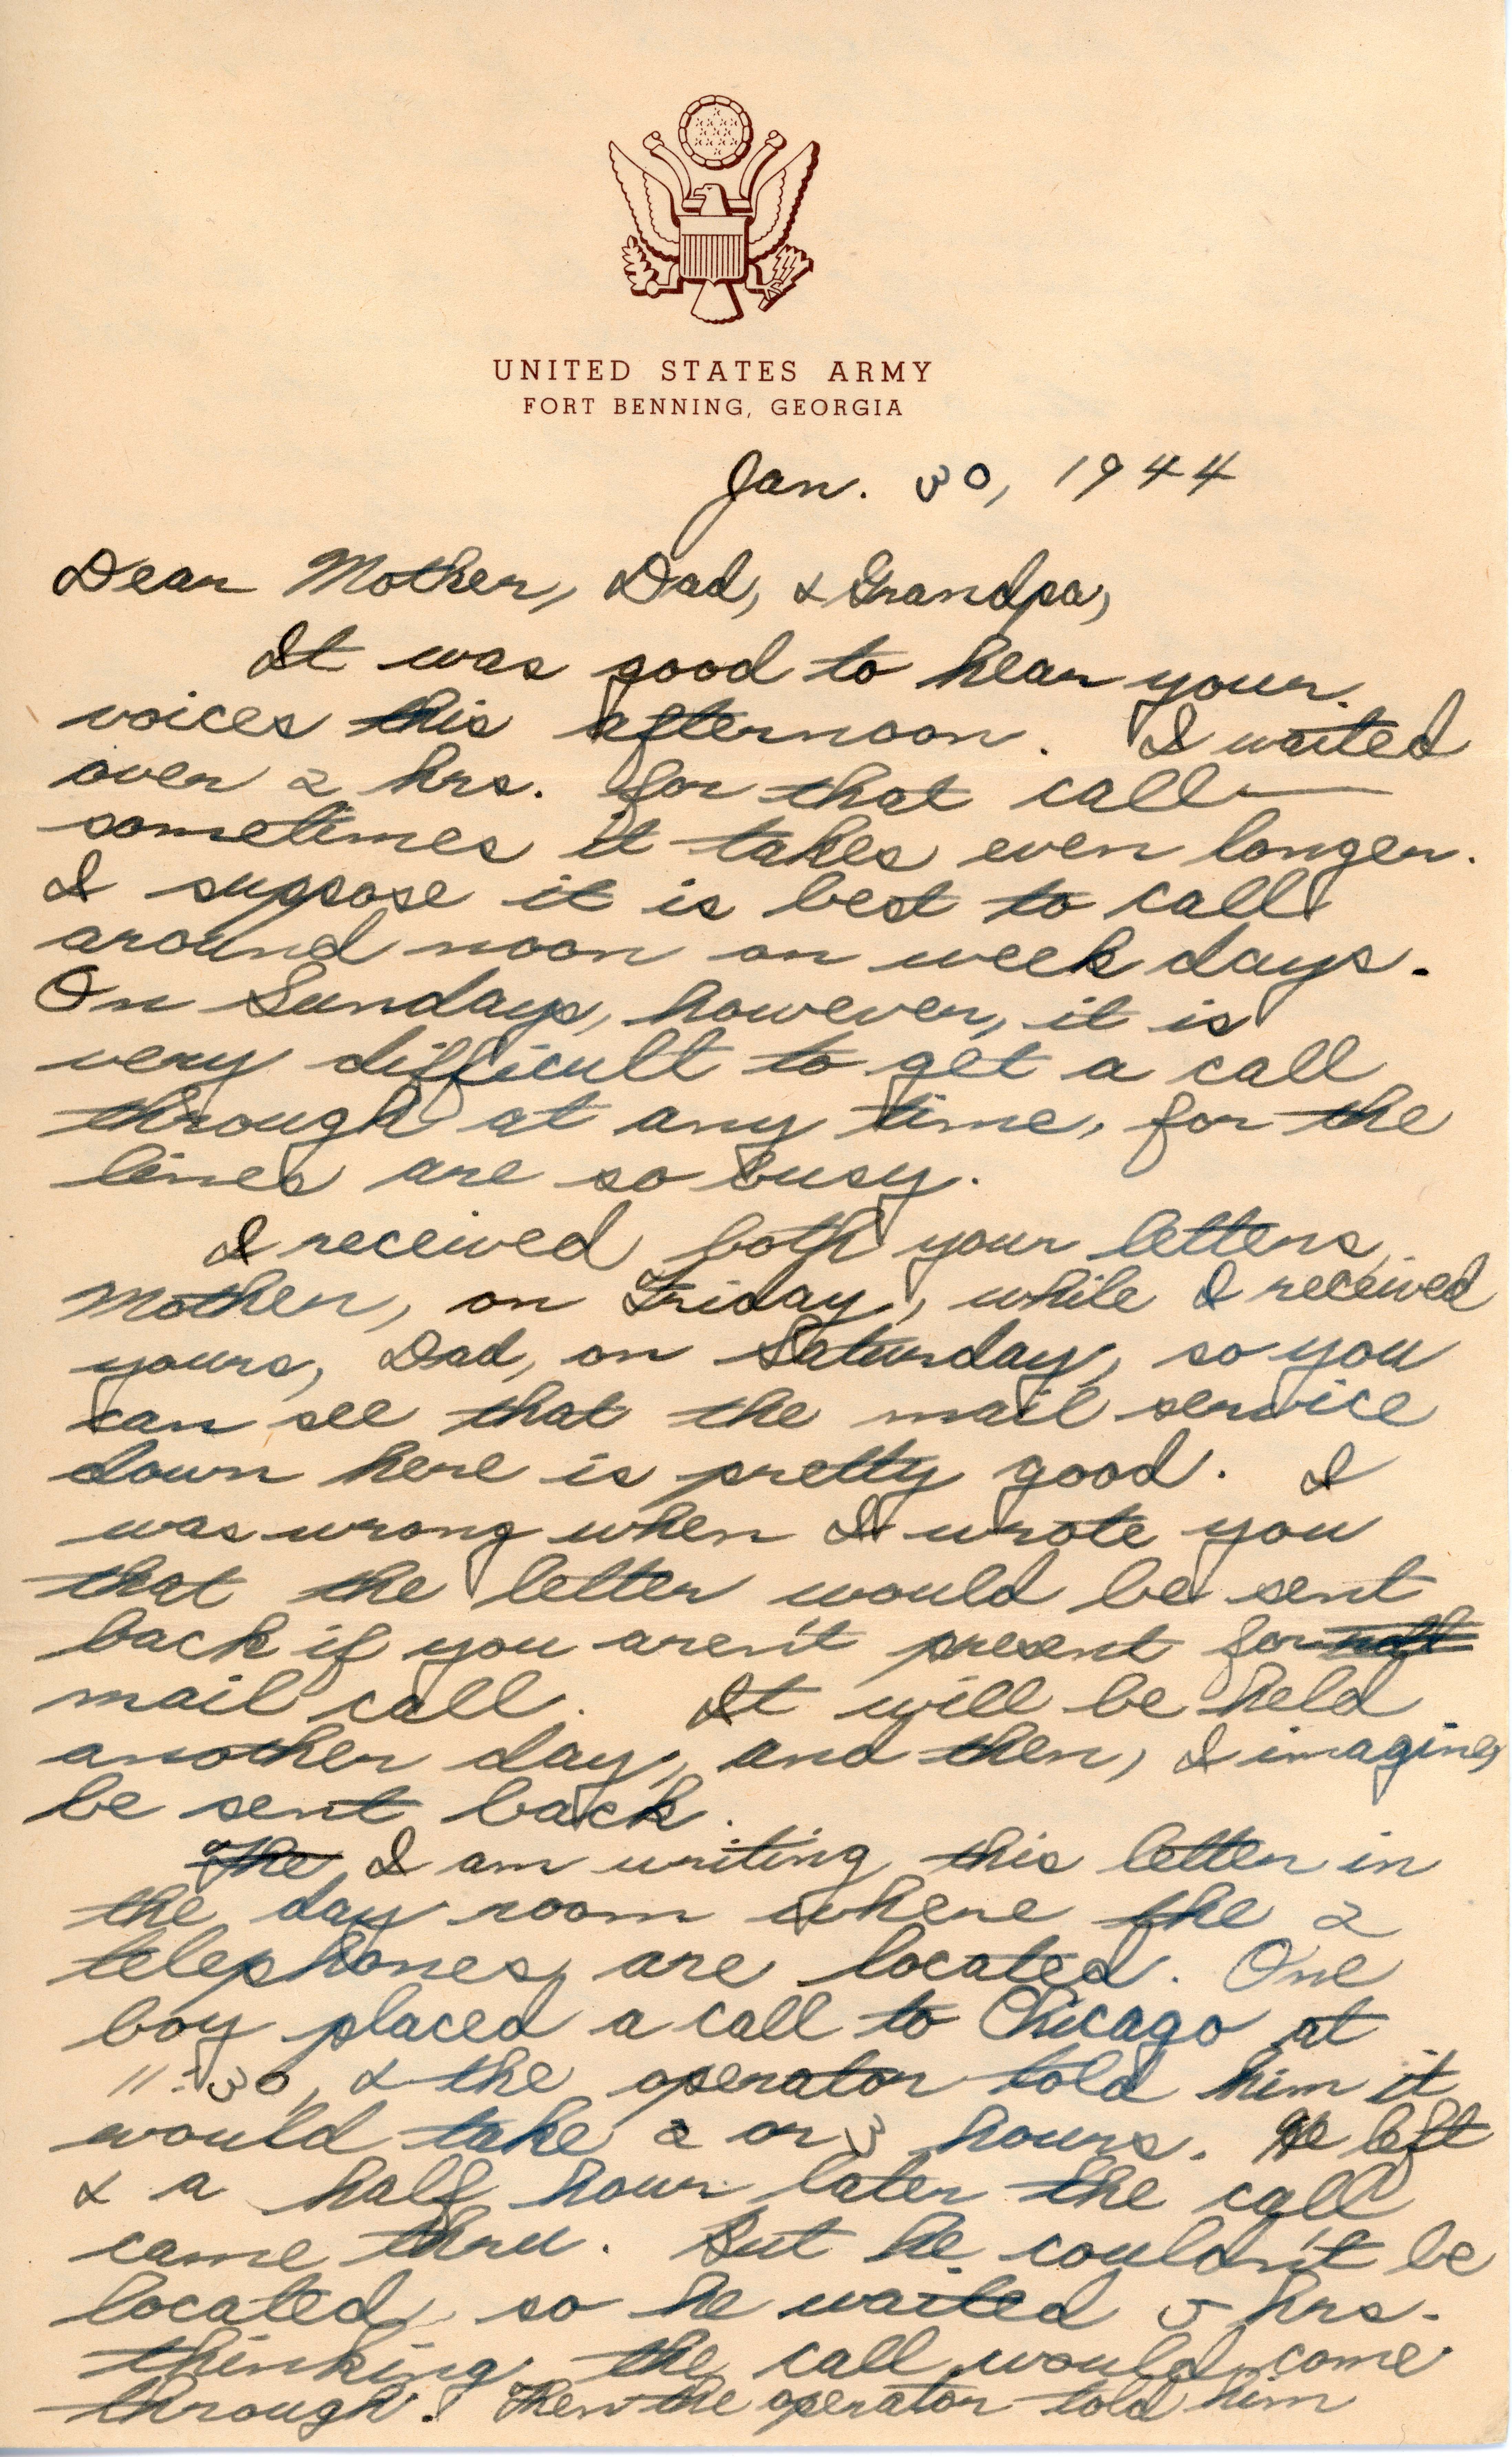 UNITED STATES ARMY
FORT BENNING, GEORGIA
Jan. 30, 1944
Dear Mother, Dad, & Grandpa,
It was good to hear your
voices this afternoon. I waited
over 2 hrs. for that call—
sometimes it takes even longer.
I suppose it is best to call
around noon on week days.
On Sundays, however, it is
very difficult to get a call
through at any time, for the
lines are so busy.
I received both your letters,
Mother, on Friday, while I received
yours, Dad, on Saturday, so you
can see that the mail service
down here is pretty good. I
was wrong when I wrote you
that the letter would be sent
back if you aren't present for
mail call. It will be held
another day, and then, I imagine,
be sent back.
The I am writing this letter in
the day room where the 2
telephones are located. One
boy placed a call to Chicago at
11:30, & the operator told him it
would take 2 or 3 hours. He left
& a half hour later the call
came thru. But he couldn't be
located, so he waited 5 hrs.
thinking the call would come
through. Then the operator told him